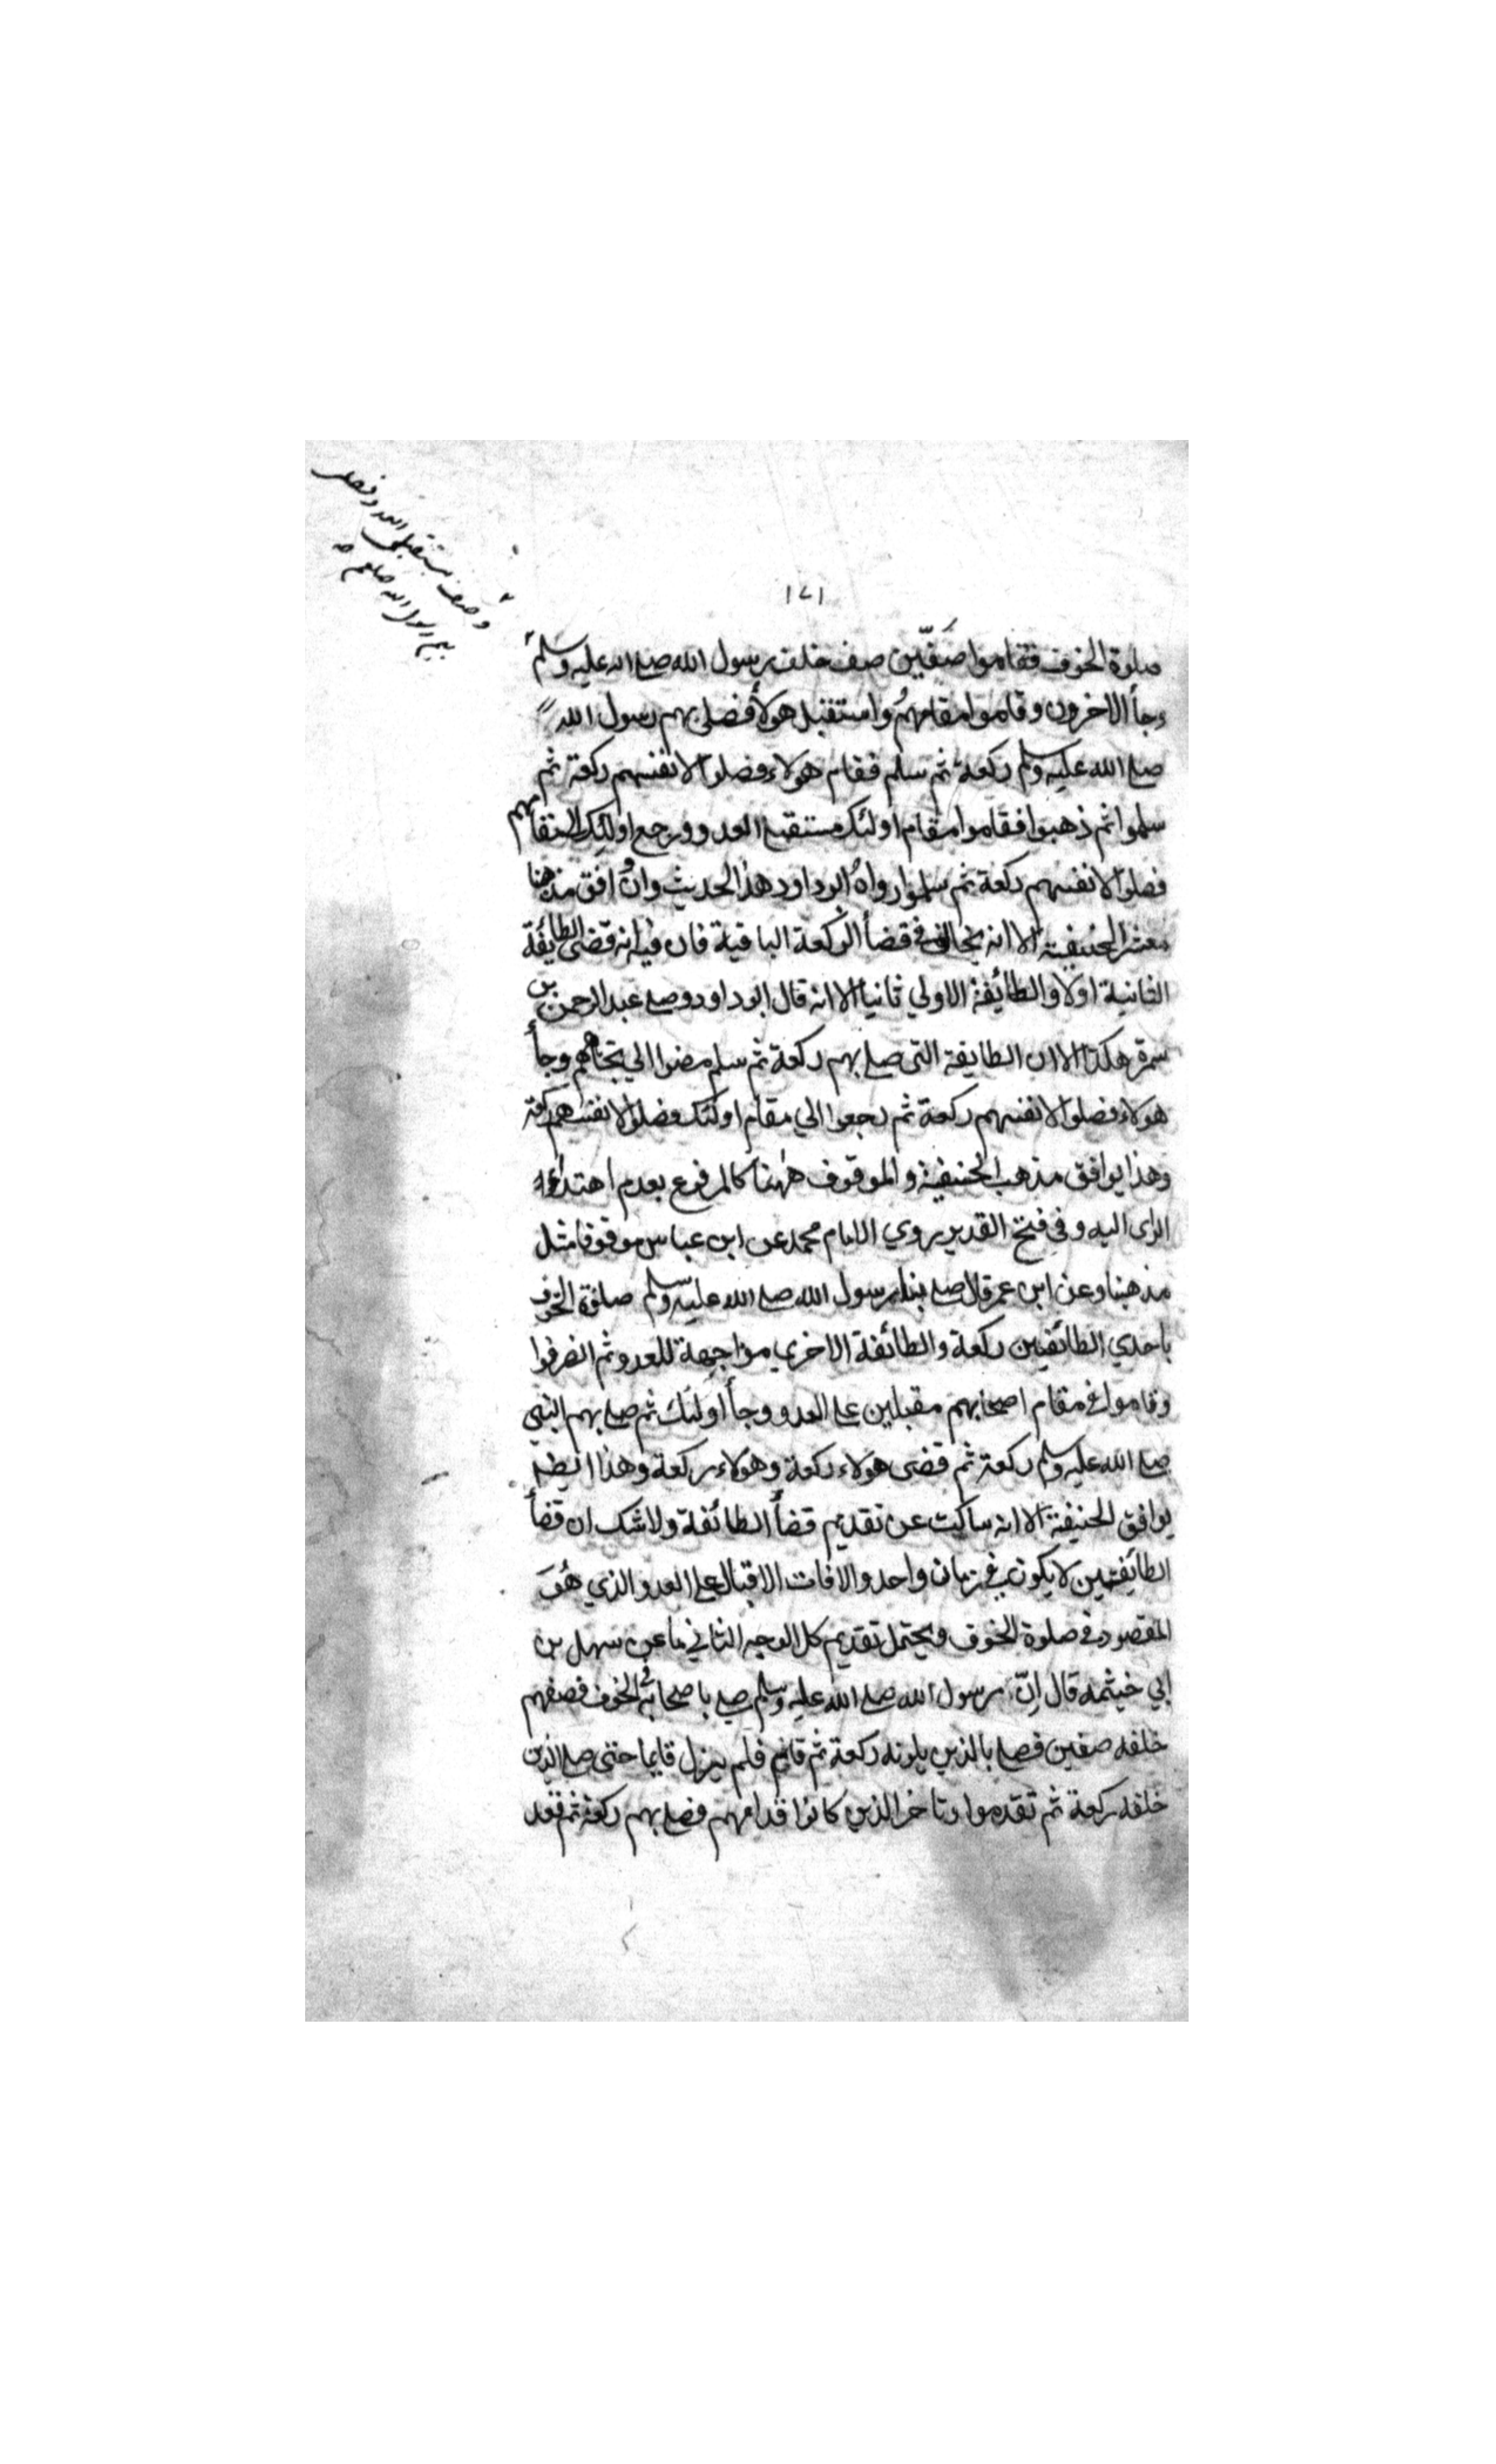 وصف مستقبلى العدو فصلى
بهم رسول الله صلعم
١٧١
صلوة الخوف فقاموا صَفّين صف خلف رسول الله صلى الله عليه وسلم
وجأ الاخرون وقاموا مقامهُم واستقبل هولأ فصلى بهم رسول الله
صلى الله عليه وسلم ركعة ثم سلم فقام هولاء فصلوا لانفسهم ركعة ثم
سلموا ثم ذهبوا فقاموا مقام اولئك مستقبلى العدو ورجع اولئك الى مقامهم
فصلوا لانفسهم ركعة ثم سلموا رواه ابو داود هذا الحديث وان وافق مذهبنا
معشر الحنيفية الا انه يخالف فى قضأ الركعة الباقية فان فيه انه قضى الطائفة
الثانية اولا والطائفة الاولي ثانيا الا انه قال ابو داود وصلى عبد الرحمن بن
سمرة هكذا الا ان الطايفة التى صلى بهم ركعة ثم سلم مضوا الي تجاههم وجأ
هولاء فصلوا لانفسهم ركعة ثم رجعوا الي مقام اولئك فصلوا لانفسهم ركعة
وهذا يوافق مذهب الحنيفية والموقوف ههنا كالمرفوع بعدم اهتداء
الراى اليه وفي فتح القدير روي الامام محمد عن ابن عباس موقوفا مثل
مذهبنا وعن ابن عمر قال صلى بنا رسول الله صلى الله عليه وسلم صلوة الخوف
باحدي الطائفتين ركعة والطائفة الاخري مواجهة للعدو ثم انصرفوا
وقاموا فى مقام اصحابهم مقبلين على العدو وجأ اولئك ثم صلى بهم النبي
صلى الله عليه وسلم ركعة ثم قضى هولاء ركعة وهولاء ركعة وهذا ايضا
يوافق الحنيفية الا انه ساكت عن تقديم قضأ الطائفة ولا شك ان قضأ
الطائفتين لا يكون في زمان واحد والا فات الاقبال على العدو الذي هُوَ
المقصود فى صلوة الخوف ويحتمل تقديم كل الوجه الثاني ما عن سهل بن
ابي خيثمه قال اِنّ رسول الله صلى الله عليه وسلم صلى باصحابه فى الخوف فصفهم
خلفه صفين فصلى بالذين يلونه ركعة ثم قام فلم يزل قايما حتى صلى الذين
خلفه ركعة ثم تقدموا وتاخر الذين كانوا قدامهم فصلى بهم ركعة ثم قعد